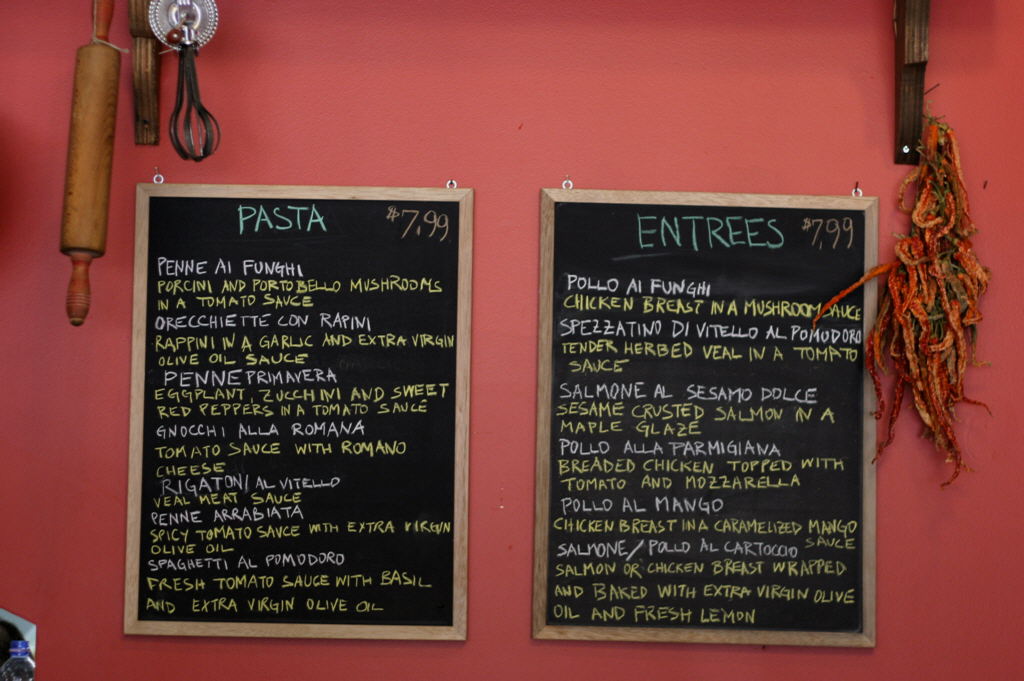 PASTA $7.99
PENNE AI FUNGHI
PORCINI AND PORTOBELLO MUSHROOMS
IN A TOMATO SAUCE
ORECCHIETTE CON RAPINI
RAPPINI IN A GARLIC AND EXTRA VIRGIN
OLIVE OIL SAUCE
PENNE PRIMAVERA
EGGPLANT, ZUCCHINI AND SWEET
RED PEPPERS IN A TOMATO SAUCE
GNOCCHI ALLA ROMANA
TOMATO SAUCE WITH ROMANO
CHEESE
RIGATONI AL VITELLO
VEAL MEAT SAUCE
PENNE ARRABIATA
SPICY TOMATO SAUCE WITH EXTRA VIRGIN
OLIVE OIL
SPAGHETTI AL POMODORO
FRESH TOMATO SAUCE WITH BASIL
AND EXTRA VIRGIN OLIVE OIL
ENTREES $7.99
POLLO AI FUNGHI
CHICKEN BREAST IN A MUSHROOM SAUCE
SPEZZATINO DI VITELLO AL POMODORO
TENDER HERBED VEAL IN A TOMATO
SAUCE
SALMONE AL SESAMO DOLCE
SESAME CRUSTED SALMON IN A
MAPLE GLAZE
POLLO ALLA PARMIGIANA
BREADED CHICKEN TOPPED WITH
TOMATO AND MOZZARELLA
POLLO AL MANGO
CHICKEN BREAST IN A CARAMELIZED MANGO
SAUCE
SALMONE/POLLO AL CARTOCCIO
SALMON OR CHICKEN BREAST WRAPPED
AND BAKED WITH EXTRA VIRGIN OLIVE
OIL AND FRESH LEMON